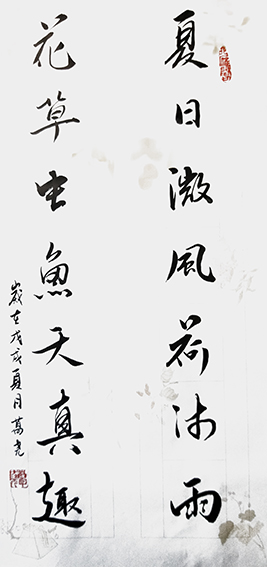 夏日微風荷沐雨
花草虫魚天真趣
歲在戊戌夏月萬